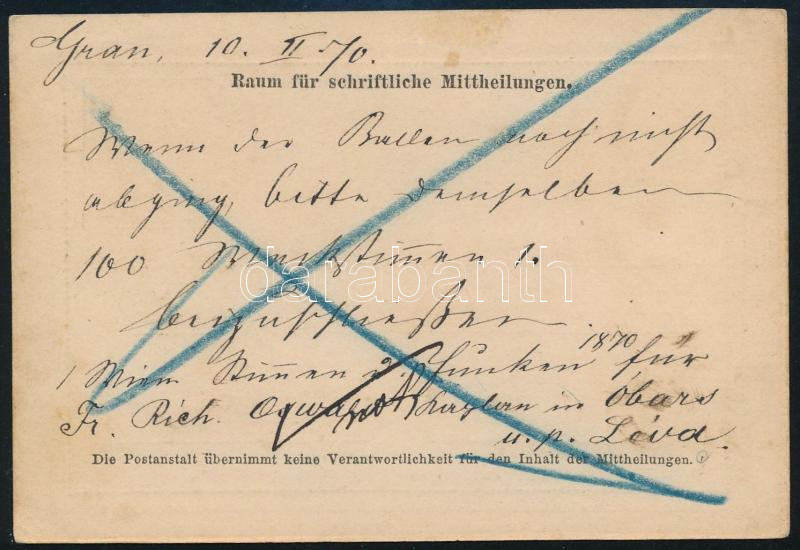 Gran, 10. II 70.
Raum für schriftliche Mittheilungen.
Wenn der Ballen noch nicht
abging, bitte demselben
100 Weckstimmen 1.
beizuschließen
1870
1 Wien. Stimmen u. Funken für
Fr. Rich. Kaplan in Óbars
u. p. Léva.
Die Postanstalt übernimmt keine Verantwortlichkeit für den Inhalt der Mittheilungen.
darabanth